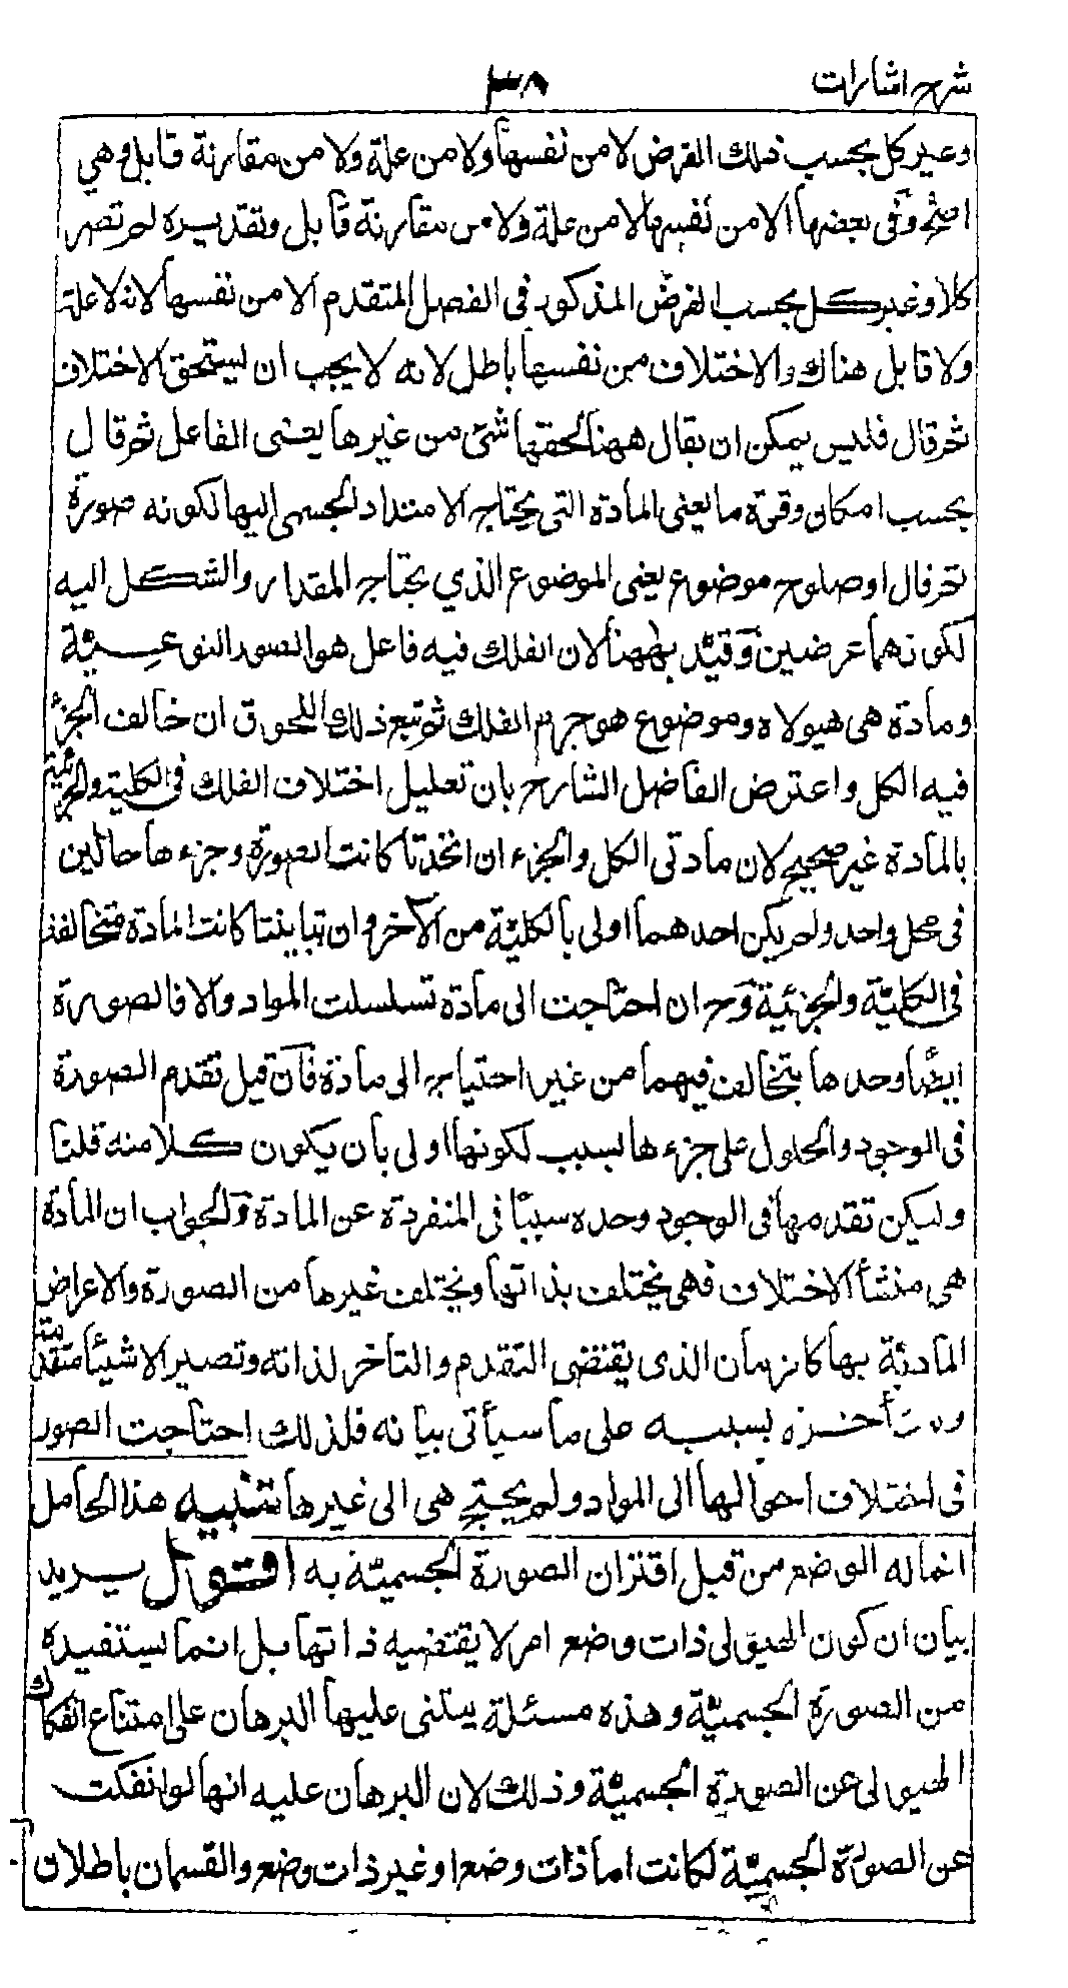 شرح اشارات
٣٨
وغير كل بحسب ذلك الفرض لا من نفسها ولا من علة ولا من مقارنة قابل وهي
اصح وفى بعضها الا من نفسها لا من علة ولا من مقارنة قابل وتقديره لم تصر
كلا وغير كل بحسب الفرض المذكور فى الفصل المتقدم الا من نفسها لانه لا علة
ولا قابل هناك والاختلاف من نفسها باطل لانه لا يجب ان يستحق الاختلاف
ثم قال فليس يمكن ان يقال ههنا لحقها شئ من غيرها يعنى الفاعل ثم قال
بحسب امكان وقوة ما يعنى المادة التى يحتاج الامتداد الجسمى اليها لكونه صورة
ثم قال او صلوح موضوع يعنى الموضوع الذي يحتاج المقدار والشكل اليه
لكونهما عرضين وقيد بههنا لان الفلك فيه فاعل هو الصور النوعيّة
ومادة هى هيولاه وموضوع هو جرم الفلك ثم تبع ذلك اللحوق ان خالف الجزء
فيه الكل واعترض الفاضل الشارح بان تعليل اختلاف الفلك فى الكلية والجزئية
بالمادة غير صحيح لان مادتى الكل والجزء ان اتحدتا كانت الصورة وجزءها حالين
فى محل واحد ولم يكن احدهما اولى بالكليّة من الآخر وان تباينتا كانت المادة متخالفة
فى الكليّة والجزئية وح ان احتاجت الى مادة تسلسلت المواد والا فالصورة
ايضًا وحدها يتخالف فيهما من غير احتياج الى مادة فان قيل تقدم الصورة
فى الوجود والحلول على جزءها بسبب لكونها اولى بان يكون كلا منه قلنا
وليكن تقدمها فى الوجود وحده سببًا فى المنفردة عن المادة والجواب ان المادة
هى منشأ الاختلاف فهى يختلف بذاتها ويختلف غيرها من الصورة والاعراض
المادية بها كالزمان الذى يقتضى التقدم والتأخر لذاته وتصير الاشيأ متقدمة
ومتأخرة بسببه على ما سيأتى بيانه فلذلك احتاجت الصور
فى اختلاف احوالها الى المواد ولم يحتج هى الى غيرها تنبيه هذا الحامل
انما له الوضع من قبل اقتران الصورة الجسميّة به اقول يريد
بيان ان كون الهيولى ذات وضع امر لا يقتضيه ذاتها بل انما يستفيده
من الصورة الجسميّة وهذه مسئلة يبتنى عليها البرهان على امتناع انفكاك
الهيولى عن الصورة الجسميّة وذلك لان البرهان عليه انها لو انفكت
عن الصورة الجسميّة لكانت اما ذات وضع او غير ذات وضع والقسمان باطلان